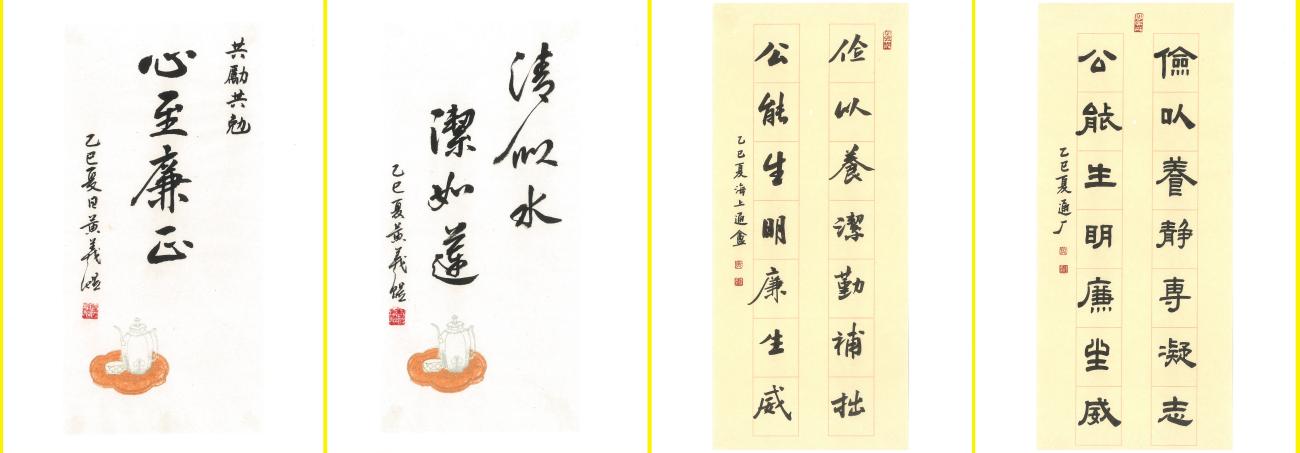 共勵共勉
心至廉正
乙巳夏日黄義焜
清似水
潔如蓮
乙巳夏黄義焜
俭以養潔勤補拙
公能生明廉生威
乙巳夏海上
儉以養静専凝志
公能生明廉生威
乙巳夏